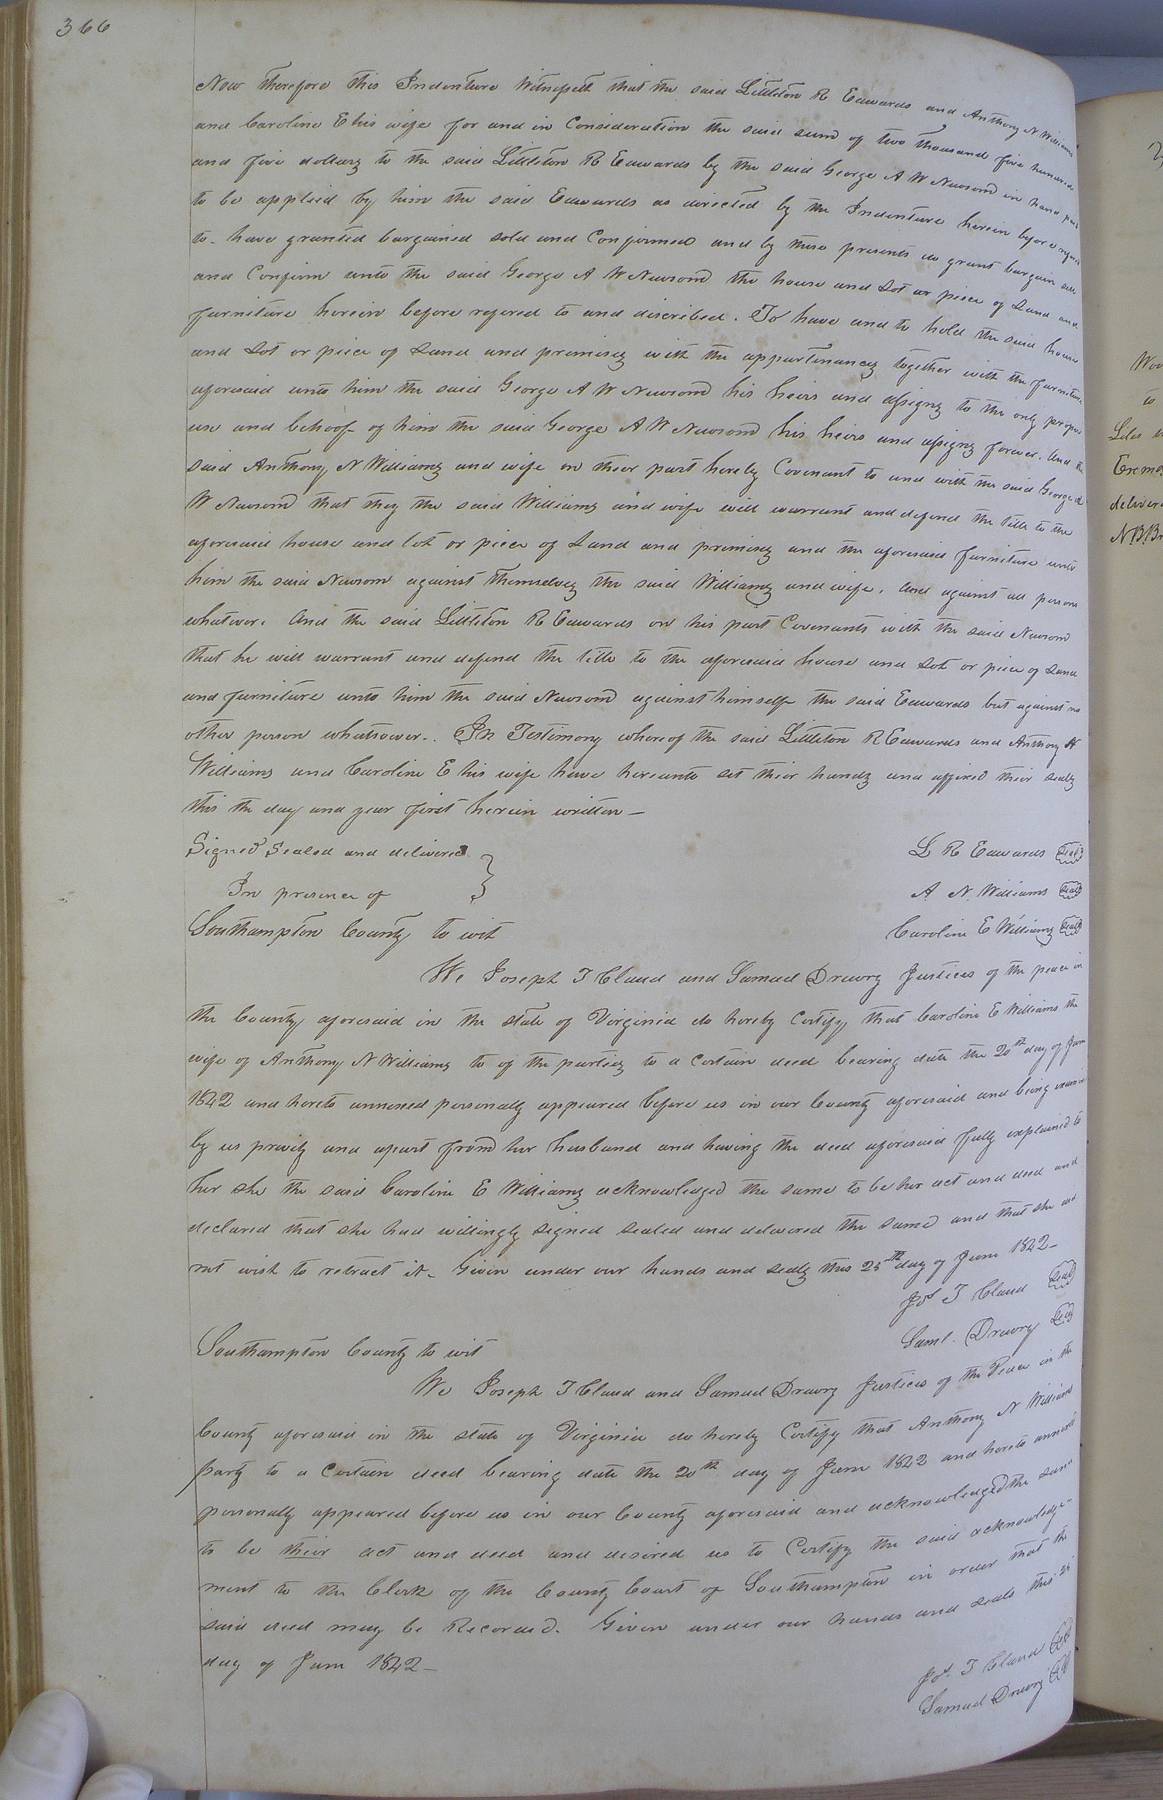 366
Now therefore this Indenture Witnesseth that the said Littleton R Edwards and Anthony N Williams
and Caroline E his wife for and in Consideration the said sum of two thousand five hundred
and five dollars to the said Littleton R Edwards by the said George A W Newsom in hand paid
to be applied by him the said Edwards as directed by the Indenture herein before
to. have granted bargained sold and Confirmed and by these presents do grant bargain sell
and Confirm unto the said George A W Newsom the house and Lot or piece of Land and
furniture herein before refered to and discribed. To have and to hold the said house
and Lot or piece of Land and premises with the appurtinances together with the furniture
aforesaid unto him the said George A W Newsom his heirs and assigns to the only proper
use and behoof of him the said George A W Newsom his heirs and assigns forever. And the
said Anthony N Williams and wife on their part hereby Covenant to and with the said George A
W Newsom that they the said Williams and wife will warrant and defend the title to the
aforesaid house and lot or piece of Land and premises and the aforesaid furniture unto
him the said Newsom against themselves the said Williams and wife. And against all persons
whatever. And the said Littleton R Edwards on his part Covenants with the said Newsom
that he will warrant and defend the title to the aforesaid house and Lot or piece of Land
and furniture unto him the said Newsom against himself the said Edwards but against no
other person whatsoever. In Testimony whereof the said Littleton R Edwards and Anthony N
Williams and Caroline E his wife have hereunto set their hands and affixed their seals
this the day and year first herein written —
Signed Sealed and delivered
L R Edwards Seal
In presence of
A. N. Williams Seal
Southampton County to wit
Caroline E Williams Seal
We Joseph T Claud and Samuel Drewry Justices of the peace in
the County aforesaid in the state of Virginia do hereby Certify that Caroline E Williams the
wife of Anthony N Williams to of the parties to a Certain deed bearing date the 20th day of June
1842 and hereto annexed personally appeared before us in our County aforesaid and being examined
by us privily and apart from her husband and having the deed aforesaid fully explained to
her she the said Caroline E Williams acknowledged the same to be her act and deed and
declared that she had willingly signed sealed and delivered the same and that she did
not wish to retract it. Given under our hands and seals this 25th day of June 1842 —
Jos T Claud Seal
Saml. Drewry Seal
Southampton County to wit
We Joseph T Claud and Samuel Drewry Justices of the Peace in the
County aforesaid in the state of Virginia do hereby Certify that Anthony N Williams
party to a Certain deed bearing date the 20th day of June 1842 and hereto annexed
personally appeared before us in our County aforesaid and acknowledged the same
to be their act and deed and desired us to Certify the said acknowledge-
ment to the Clerk of the County Court of Southampton in order that the
said deed may be Recorded. Given under our hands and seals this 25
day of June 1842 —
Jos. T Claud Seal
Samuel Drewry Seal
to
delivered